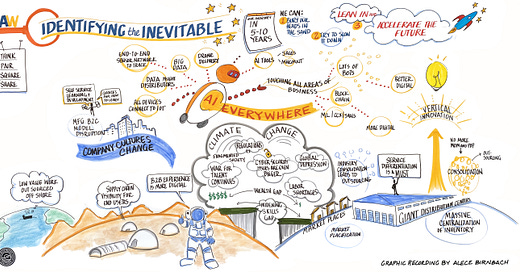 AW
THINK
PAIR
SQUARE
SHARE
IDENTIFYING the INEVITABLE
IN
5-10
YEARS
WE CAN:
1. BURY OUR
HEADS IN
THE SAND
2. TRY TO SLOW
IT DOWN
LEAN IN
3.
ACCELERATE THE
FUTURE
END-TO-END
SQUARE NETWORK
TO TRACK
BIG
DATA
DRONE
DELIVERY
AI TOOLS
SALES
LOTS
OF BOTS
BETTER
DIGITAL
DATA
DISTRIBUTORS
TOUCHING ALL AREAS OF
BUSINESS
SELF SERVICE
LEARNING &
DEVELOPMENT
ALL DEVICES
CONNECT TO IOT
AI EVERYWHERE
BLOCK
CHAIN
MORE DIGITAL
VERTICAL
INNOVATION
MFG B2C
MODEL
DISRUPTION
COMPANY CULTURES
CHANGE
CLIMATE CHANGE
REGULATIONS
FRAGMENTED
SOCIETY
WAR FOR
TALENT
CONTINUES
CYBER SECURITY
RISKS ARE EVEN
BIGGER
GLOBAL
DEPRESSION
WEALTH GAP
LABOR
SHORTAGES
WIDENING
SKILLS
GAP
INDUSTRY
CONSOLIDATION
LEADS TO
OUTSOURCING
SERVICE
DIFFERENTIATION
IS A MUST
NO MORE
CONSOLIDATION
OUT-
SOURCING
LOW VALUE WORK
OUT SOURCED
OFF SHORE
SUPPLY CHAIN
VISIBILITY FOR
END USERS
B2B EXPERIENCE
IS MORE DIGITAL
MARKET PLACES
MARKET
PLACIFICATION
GIANT DISTRIBUTION CENTERS
MASSIVE
CENTRALIZATION
OF INVENTORY
GRAPHIC RECORDING BY ALECE BIRNBACH